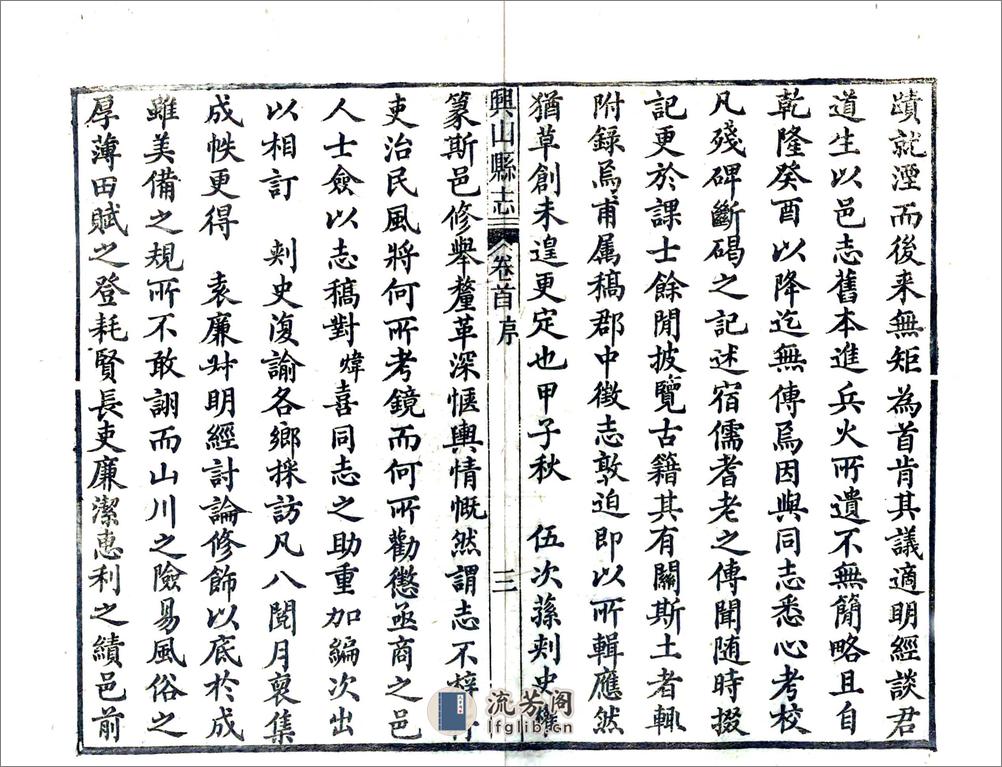 蹟就湮而後来無矩為首肯其議適明經談君
道生以邑志舊本進兵火所遺不無簡略且自
乾隆癸酉以降迄無傳焉因與同志悉心考校
凡殘碑斷碣之記述宿儒耆老之傳聞随時掇
記更於課士餘閒披覽古籍其有關斯土者輙
附録焉甫属稿郡中徵志敦迫即以所輯應然
猶草創未遑更定也甲子秋 伍次蓀刺史
興山縣志 卷首 序 三
篆斯邑修舉釐革深愜輿情慨然謂志不梓
吏治民風將何所考鏡而何所勸懲亟商之邑
人士僉以志稿對煒喜同志之助重加編次出
以相訂 刺史復諭各鄉採訪凡八閱月裒集
成帙更得 袁廉叔明經討論修飾以底於成
雖美備之規所不敢詡而山川之險易風俗之
厚薄田賦之登耗賢長吏廉潔惠利之績邑前
流芳阁
lfglib.cn